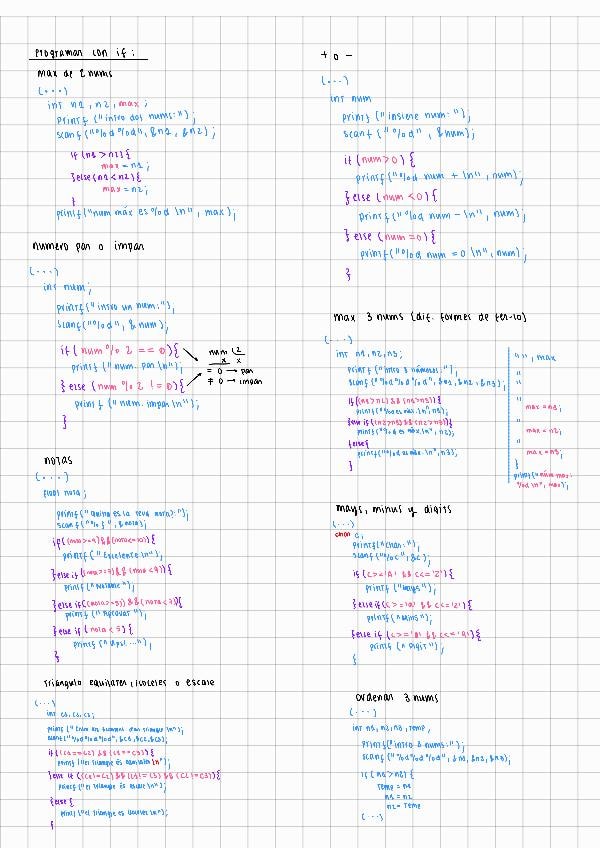 Programan con if:
max de 2 nums
(...)
int n1, n2, max;
printf ("intro dos nums:");
scanf ("%d %d", &n1, &n2);
if (n1 > n2) {
max = n1;
} else (n1 < n2) {
max = n2;
}
printf ("num máx es %d \n", max);
numero par o impar
(...)
int num;
printf ("intro un num:");
scanf ("%d", & num);
if (num % 2 == 0) {
printf ("num. par \n");
} else (num % 2 != 0) {
printf ("num. impar \n");
}
num 2
x x
= 0 → par
≠ 0 → impar
notas
(...)
float nota;
printf ("Quina es la teva nota?:");
scanf ("%f", &nota);
if ((nota >= 9) && (nota <= 10)) {
printf ("Excelente \n");
} else if ((nota >= 7) && (nota < 9)) {
printf ("Notable");
} else if ((nota >= 5) && (nota < 7)) {
printf ("Aprovar");
} else if (nota < 5) {
printf ("Ups! ...");
}
Triangulo equilater, isoceles o escale
(...)
int c1, c2, c3;
printf ("Entra els
scanf ("%d %d %d", &c1, &c2, &c3);
if ((c1 == c2) && (c2 == c3)) {
printf ("el triangle és equilater \n");
} else if ((c1 != c2) && (c2 != c3) && (c1 != c3)) {
printf ("el triangle és escale \n");
} else {
printf ("el triangle és isoceles \n");
}
+ o -
(...)
int num
printf ("insiene num:");
scanf ("%d", &num);
if (num > 0) {
printf ("%d num + \n", num);
} else (num < 0) {
printf ("%d num - \n", num);
} else (num = 0) {
printf ("%d num = 0 \n", num);
}
max 3 nums (dif. formes de fer-lo)
(...)
int n1, n2, n3;
printf ("intro 3 números:");
scanf ("%d %d %d", &n1, &n2, &n3);
if ((n1 > n2) && (n1 > n3)) {
printf ("%d es máx. \n", n1);
} else if ((n2 > n1) && (n2 > n3)) {
printf ("%d es máx. \n", n2);
} else {
printf ("%d es máx. \n", n3);
}
" ", max
"
"
"
max = n1;
"
max = n2;
"
max = n3;
}
printf ("núm max:
%d \n", max);
mays, minus y digits
(...)
char c;
printf ("Char:");
scanf ("%c", &c);
if (c >= 'A' && c <= 'Z') {
printf ("Mays");
} else if (c >= 'a' && c <= 'z') {
printf ("Mins");
} else if (c >= '0' && c <= '9') {
printf ("Digit");
}
ordenar 3 nums
(...)
int n1, n2, n3, temp,
printf ("intro 3 nums:");
scanf ("%d %d %d", &n1, &n2, &n3);
if (n1 > n2) {
temp = n1
n1 = n2
n2 = temp
(...)